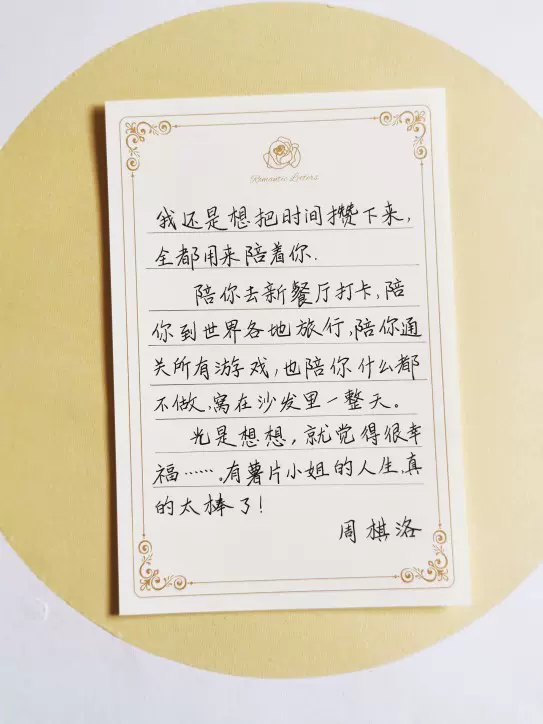 Romantic Letters
我还是想把时间攒下来,
全都用来陪着你.
陪你去新餐厅打卡,陪
你到世界各地旅行,陪你通
关所有游戏,也陪你什么都
不做,窝在沙发里一整天。
光是想想,就觉得很幸
福……。有薯片小姐的人生,真
的太棒了!
周棋洛